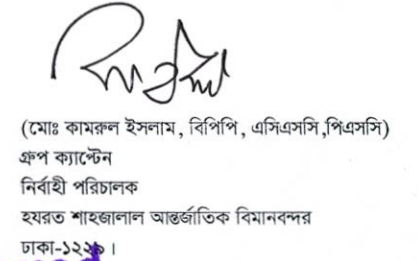 (মোঃ কামরুল ইসলাম, বিপিপি, এসিএসসি,পিএসসি)
গ্রুপ ক্যাপ্টেন
নির্বাহী পরিচালক
হযরত শাহজালাল আন্তর্জাতিক বিমানবন্দর
ঢাকা-১২২৯।